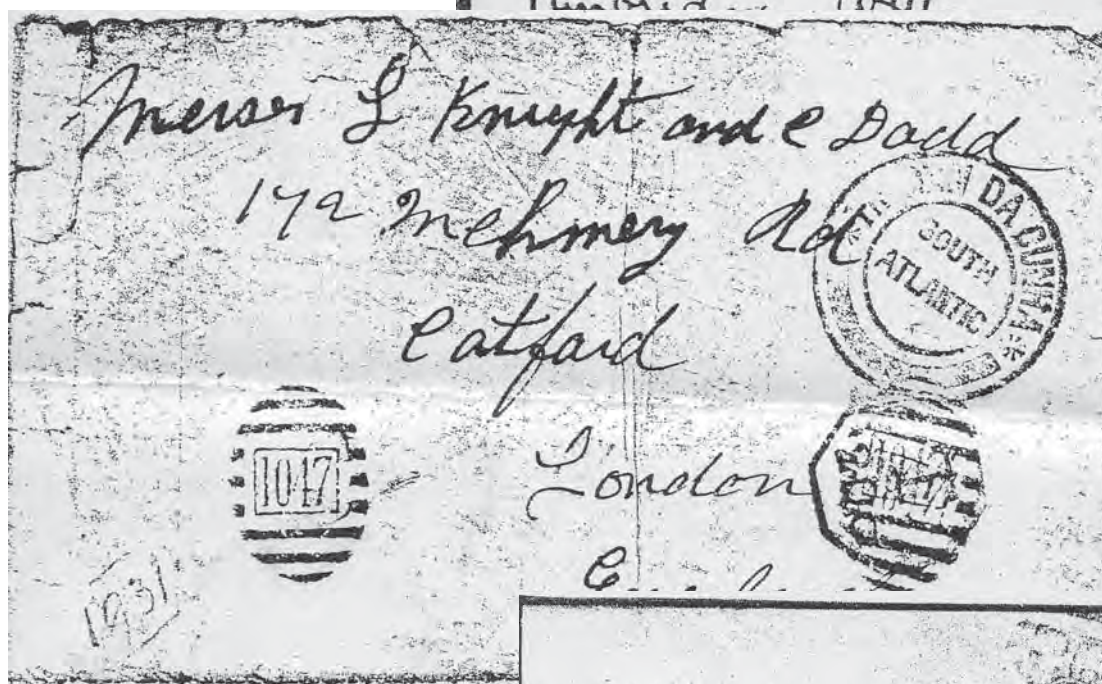 Messrs L Knight and C Dodd
172 McAmery Rd
Catford
London
DA CUNHA
SOUTH
ATLANTIC
1047
1931